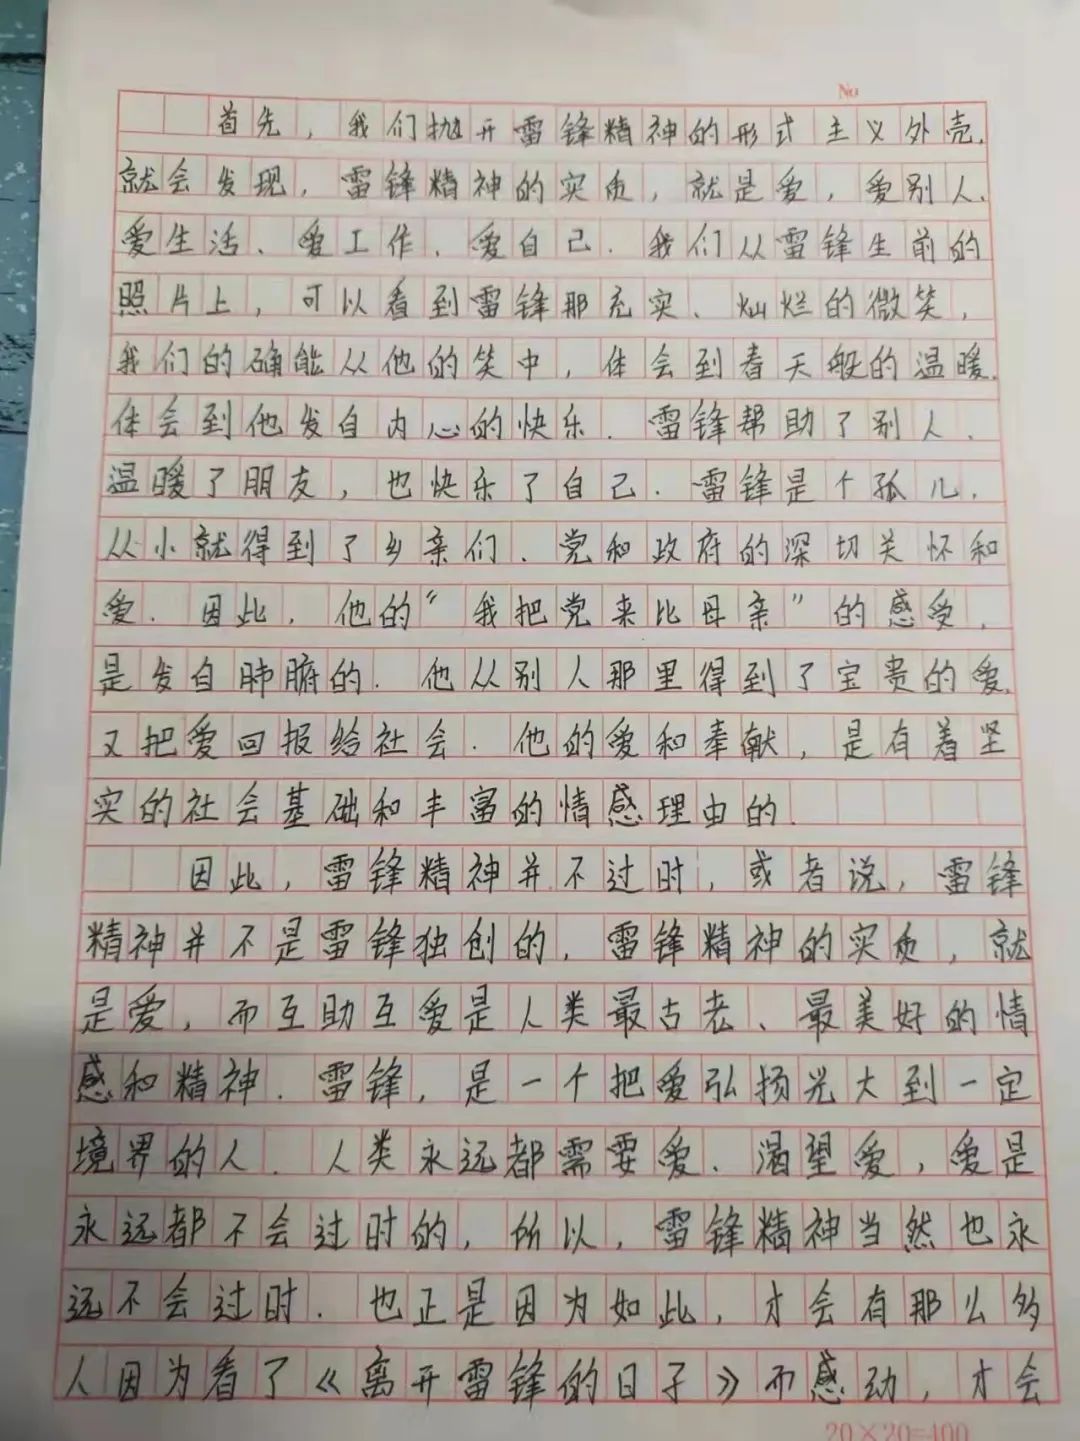 No
首先，我们抛开雷锋精神的形式主义外壳.
就会发现，雷锋精神的实质，就是爱，爱别人.
爱生活、爱工作、爱自己.我们从雷锋生前的
照片上，可以看到雷锋那充实、灿烂的微笑，
我们的确能从他的笑中，体会到春天般的温暖.
体会到他发自内心的快乐.雷锋帮助了别人、
温暖了朋友，也快乐了自己.雷锋是个孤儿，
从小就得到了乡亲们、党和政府的深切关怀和
爱.因此，他的“我把党来比母亲”的感受，
是发自肺腑的.他从别人那里得到了宝贵的爱.
又把爱回报给社会.他的爱和奉献，是有着坚
实的社会基础和丰富的情感理由的.
因此，雷锋精神并不过时，或者说，雷锋
精神并不是雷锋独创的，雷锋精神的实质，就
是爱，而互助互爱是人类最古老、最美好的情
感和精神.雷锋，是一个把爱弘扬光大到一定
境界的人.人类永远都需要爱、渴望爱，爱是
永远都不会过时的，所以，雷锋精神当然也永
远不会过时.也正是因为如此，才会有那么多
人因为看了《离开雷锋的日子》而感动，才会
20×20=400